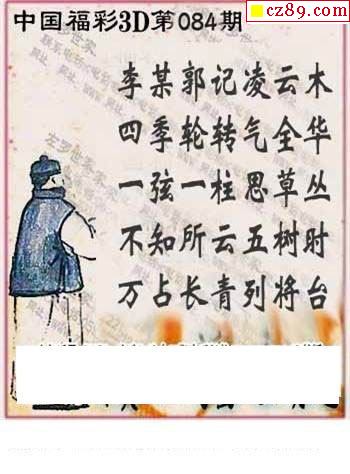 cz89.com
中国福彩3D第084期
李某郭记凌云木
四季轮转气全华
一弦一柱思草丛
不知所云五树时
万占长青列将台